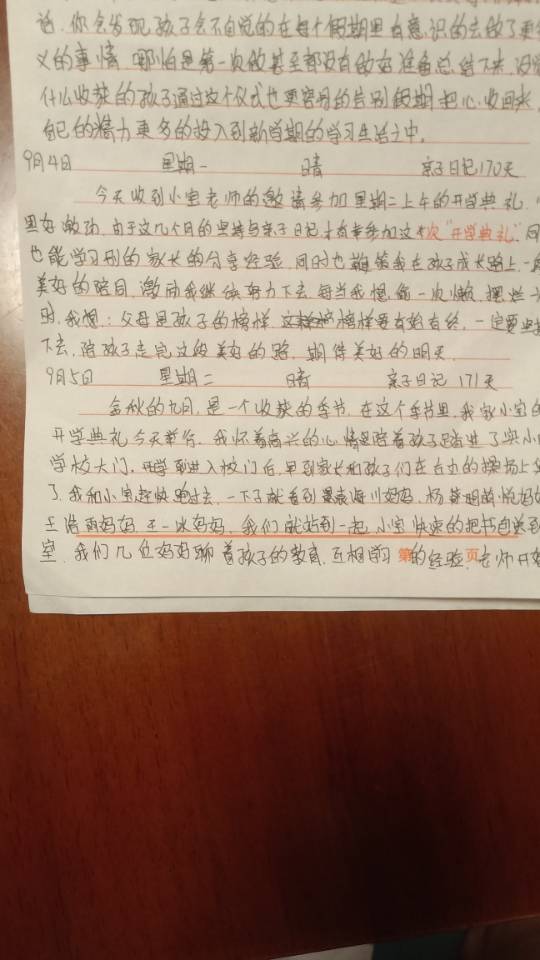 话,你会发现孩子会不自觉的在每个假期里有意识的去做了更
义的事情,哪怕是第一次做甚至都没有做好准备总结下来,没
什么收获的孩子通过这个仪式也更容易的告别假期把心收回来,
自己的精力更多的投入到新学期的学习生活之中。
9月4日 星期一 晴 亲子日记170天
今天收到小宝老师的邀请参加星期二上午的开学典礼,
里好激动,由于这几个月的坚持与亲子日记才有幸参加这次"开学典礼"同
也能学习别的家长的分享经验,同时也鞭策我在孩子成长路上一
美好的陪同,激励我继续努力下去,每当我想偷一次懒,摆烂一
时,我想:父母是孩子的榜样 榜样要有始有终,一定要坚持
下去,陪孩子走完这段美好的路,期待美好的明天。
9月5日 星期二 晴 亲子日记 171天
金秋的九月,是一个收获的季节,在这个季节里,我家小宝的
开学典礼今天举行,我怀着高兴的心情陪着孩子踏进了实小
学校大门,进入校门后,早到家长和孩子们在台力的操场上
了,我和小宝赶快跑过去,一下子就看到 海川妈妈,杨 妈妈
王浩雨妈妈,王一冰妈妈,我们就站到一起,小宝快速的把书包送到
室,我们几位妈妈聊着孩子的教育,互相学习 第 的经验 页 老师开始